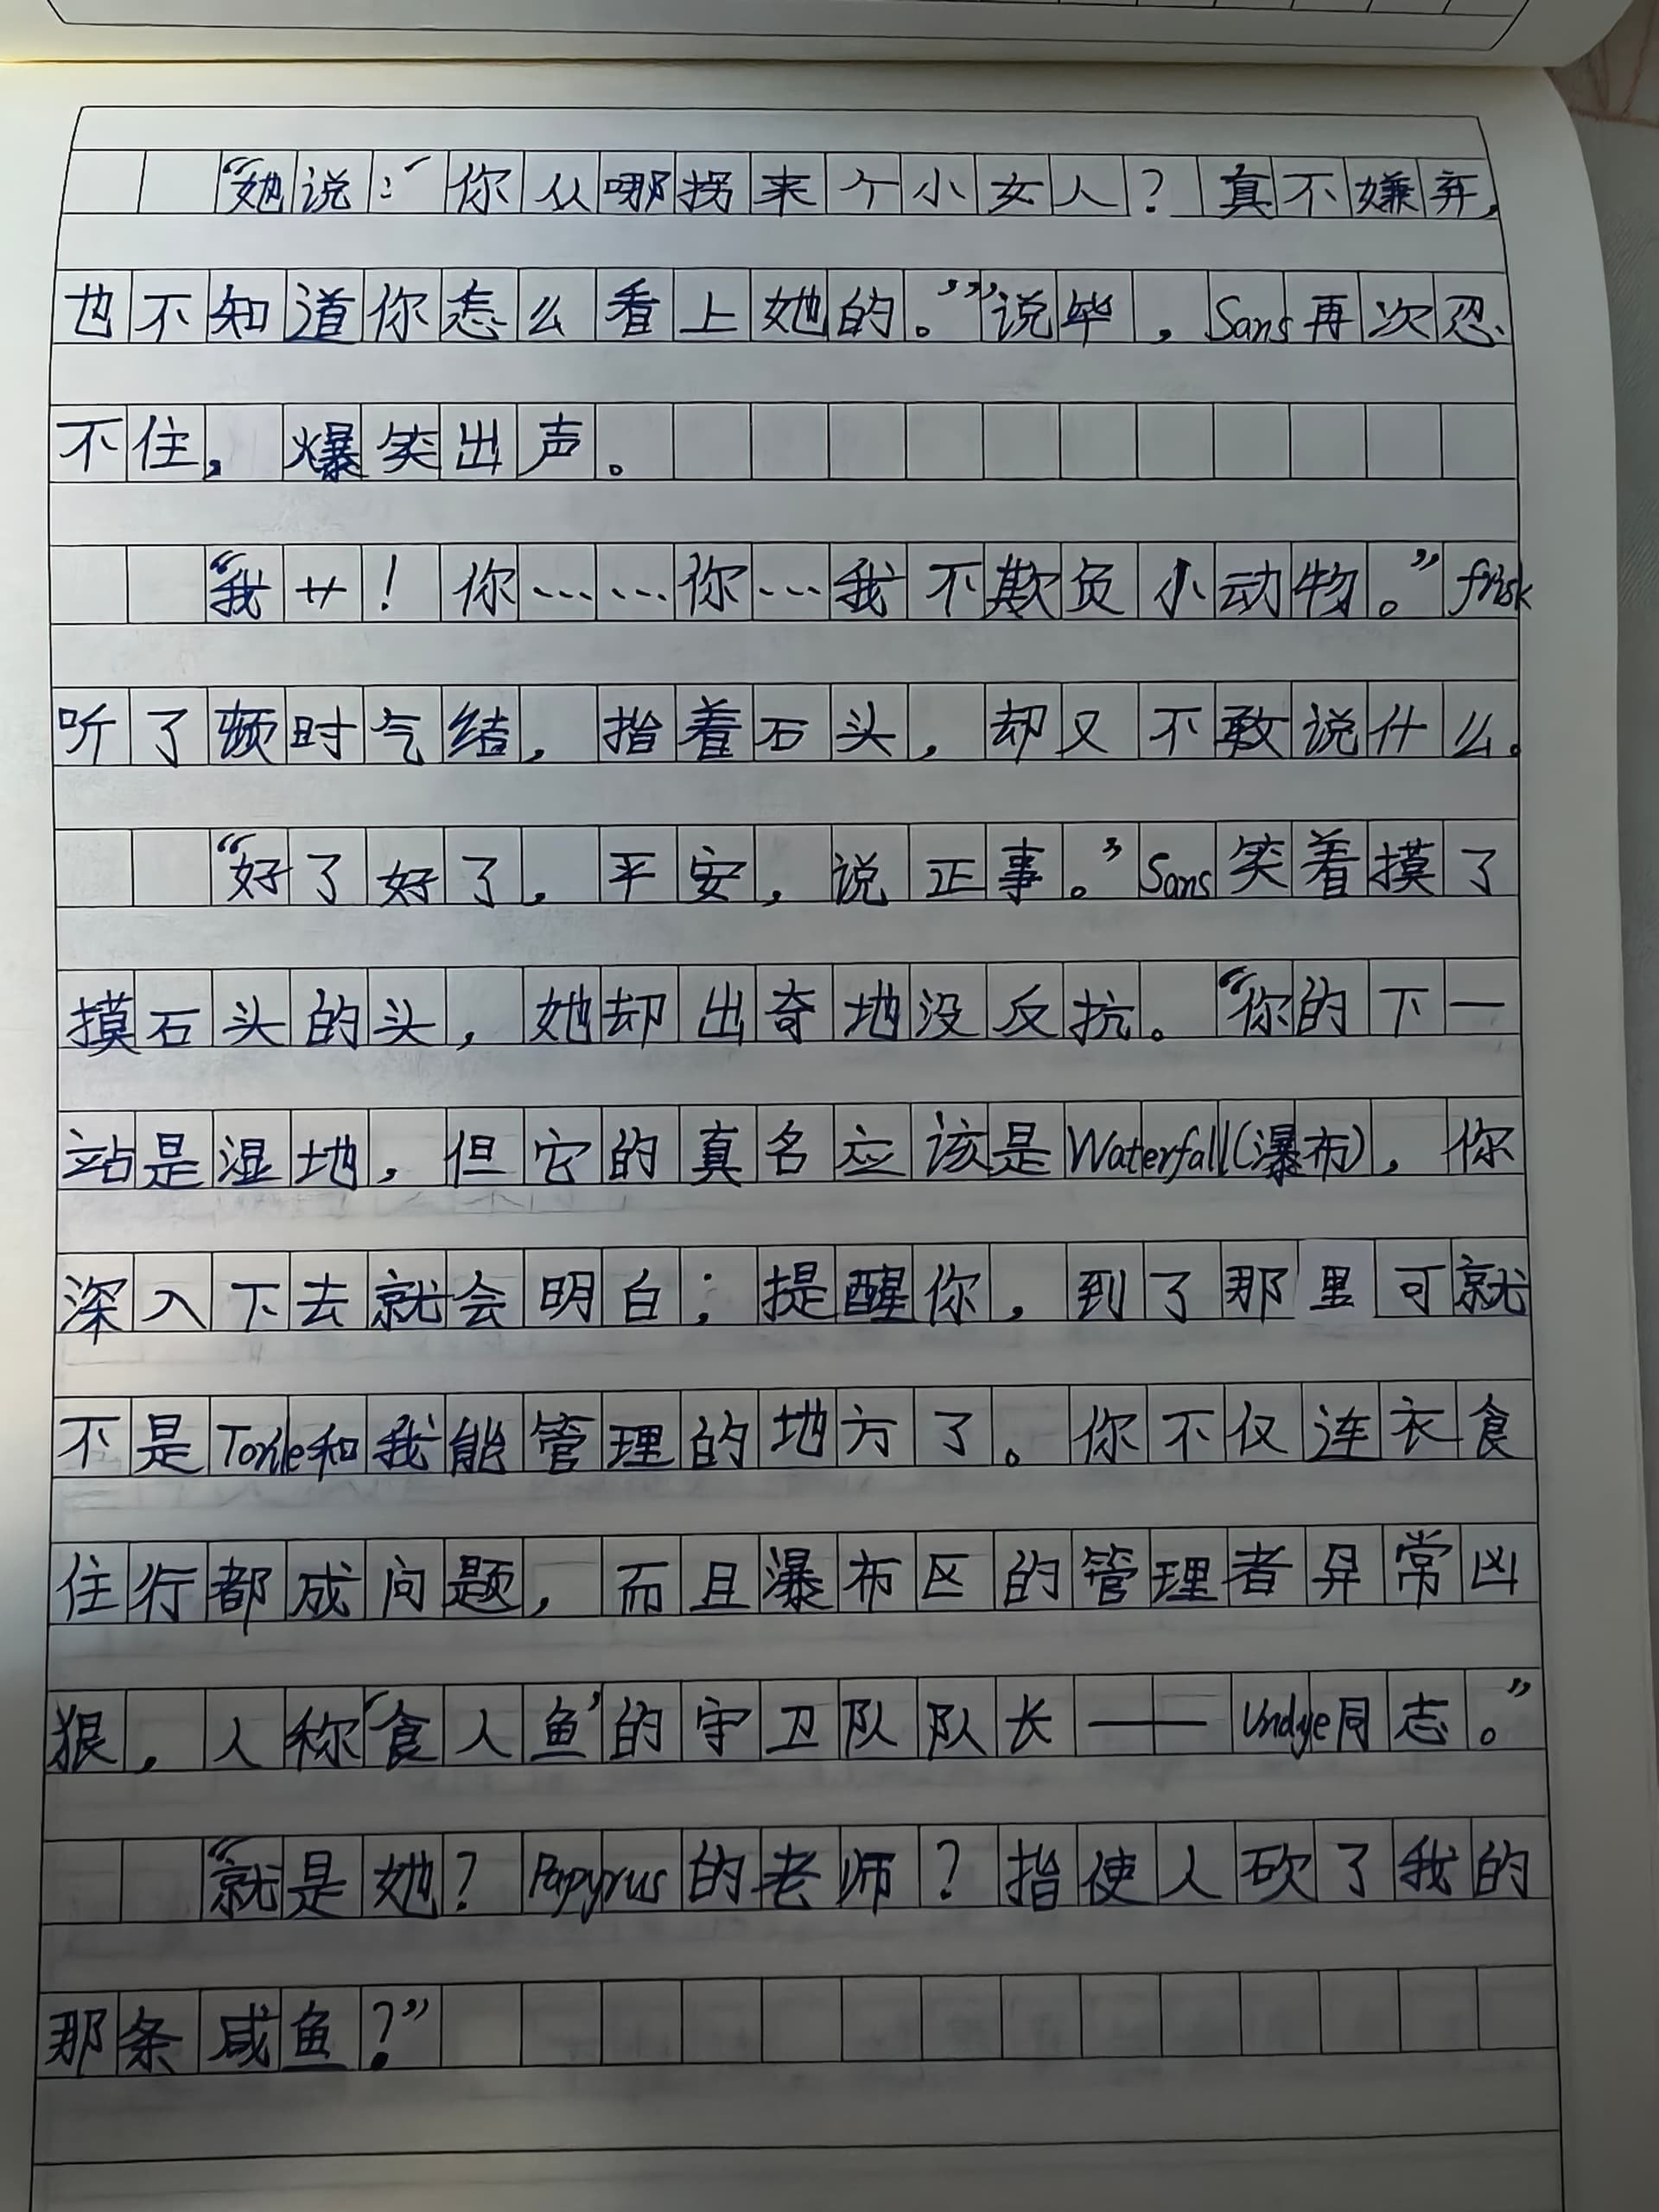 “她说:‘你从哪拐来个小女人?真不嫌弃,
也不知道你怎么看上她的。’”说毕,Sans再次忍
不住,爆笑出声。
“我艹!你……你…我不欺负小动物。”frisk
听了顿时气结,指着石头,却又不敢说什么。
“好了好了,平安,说正事。”Sans笑着摸了
摸石头的头,她却出奇地没反抗。“你的下一
站是湿地,但它的真名应该是Waterfall(瀑布),你
深入下去就会明白;提醒你,到了那里可就
不是Toriel和我能管理的地方了。你不仅连衣食
住行都成问题,而且瀑布区的管理者异常凶
狠,人称‘食人鱼’的守卫队队长——Undye同志。”
“就是她?Papyrus的老师?指使人砍了我的
那条咸鱼?”